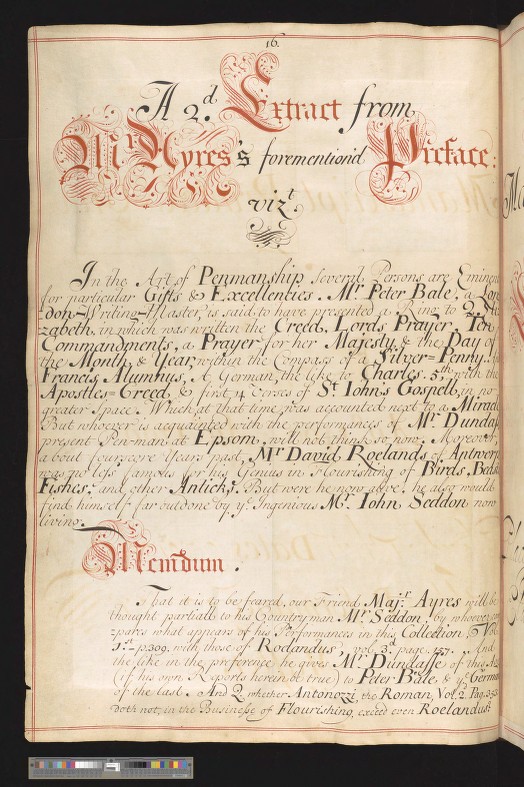 16.
A 2.d Extract from
Mr Ayres's forementiond Preface:
vizt.
In the Art of Penmanship several Persons are Eminent
for particular Gifts & Excellencies. Mr. Peter Bale, a Lon
don-Writing-Master, is said to have presented a Ring to Q. Eli
zabeth, in which was written the Creed, Lords Prayer, Ten
Commandments, a Prayer for her Majesty & the Day of
the Month, & Year, within the Compass of a Silver-Penny.
Francis Alumnus, A German, the like to Charles 5th with the
Apostles-Creed, & first 14 Verses of St. Iohn's Gospell, in no
greater Space. Which at that time was accounted next to a Miracle
But whoever is acquainted with the performances of Mr. Dundas
present Pen-man at Epsom, will not think so now. Moreover,
about fourscore Years past, Mr David Roelands of Antwerp
was no less famous for his Genius in Flourishing of Birds, Beasts
Fishes, and other Anticks. But were he now alive, he also would
find himself far outdone by ye. Ingenious Mr. Iohn Seddon now
living.
Memdum.
That it is to be feared, our Friend Majr. Ayres will be
thought partiall to his Countryman Mr. Seddon, by whoever com
=pares what appears of his Performances in this Collection, Vol.
1.st p.309. with those of Rodandus, vol. 3. page. 157. And
the like in the preference he gives Mr. Dundasse of this
(if his own Reports herein be true) to Peter Bale, & ye. German
of the last. And Q. whether Antonozzi, the Roman, Vol. 2. Pag. 353
doth not, in the Businesse of Flourishing, exceed even Roelandus.